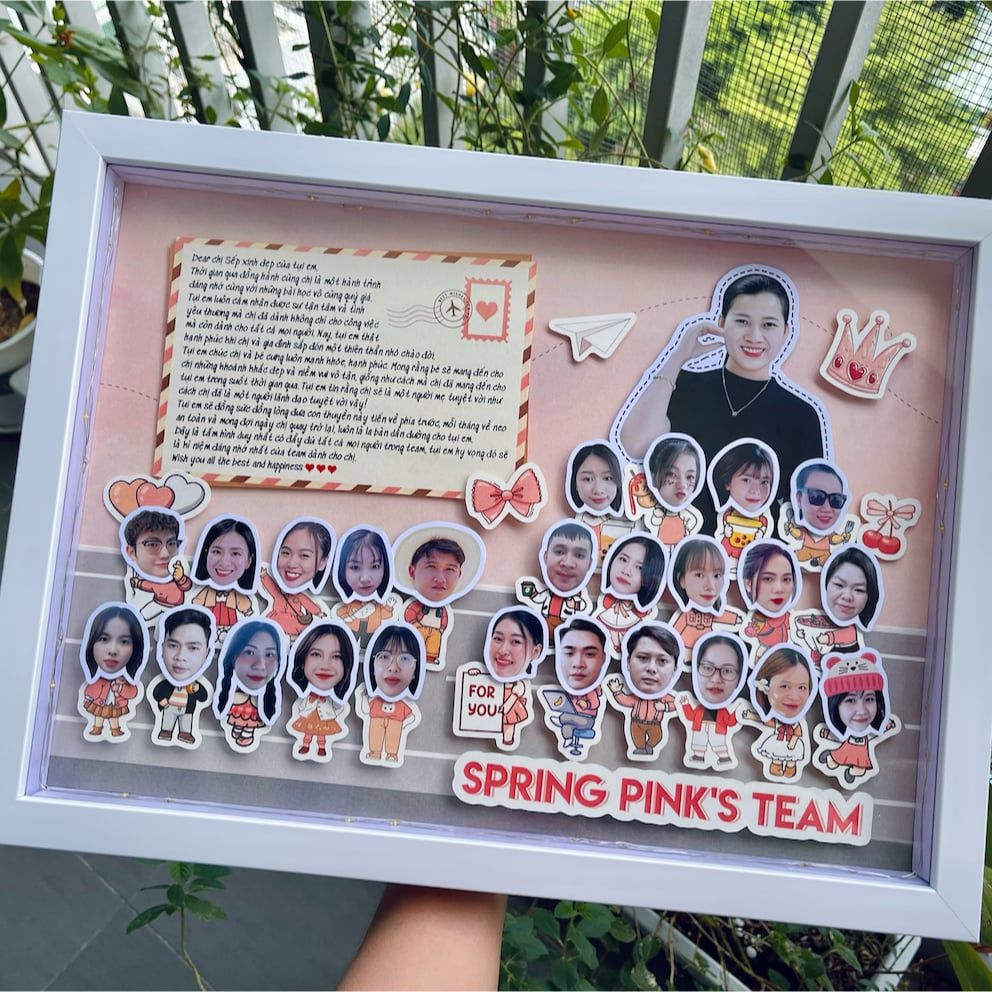 Dear chị Sếp xinh đẹp của tụi em,
Thời gian qua đồng hành cùng chị là một hành trình
đáng nhớ cùng với những bài học vô cùng quý giá.
Tụi em luôn cảm nhận được sự tận tâm và tình
yêu thương mà chị đã dành không chỉ cho công việc
mà còn dành cho tất cả mọi người. Nay, tụi em thật
hạnh phúc khi chị và gia đình sắp đón một thiên thần nhỏ chào đời.
Tụi em chúc chị và bé cưng luôn mạnh khỏe, hạnh phúc. Mong rằng bé sẽ mang đến cho
chị những khoảnh khắc đẹp và niềm vui vô tận, giống như cách mà chị đã mang đến cho
tụi em trong suốt thời gian qua. Tụi em tin rằng chị sẽ là một người mẹ tuyệt vời như
cách chị đã là một người lãnh đạo tuyệt vời vậy!
Tụi em sẽ đồng sức đồng lòng đưa con thuyền này tiến về phía trước, mỗi tháng về neo
an toàn và mong đợi ngày chị quay trở lại, luôn là la bàn dẫn đường cho tụi em.
Đây là tấm hình duy nhất có đầy đủ tất cả mọi người trong team, tụi em hy vọng đó sẽ
là kỉ niệm đáng nhớ nhất của team dành cho chị.
Wish you all the best and happiness
FOR
YOU
SPRING PINK'S TEAM